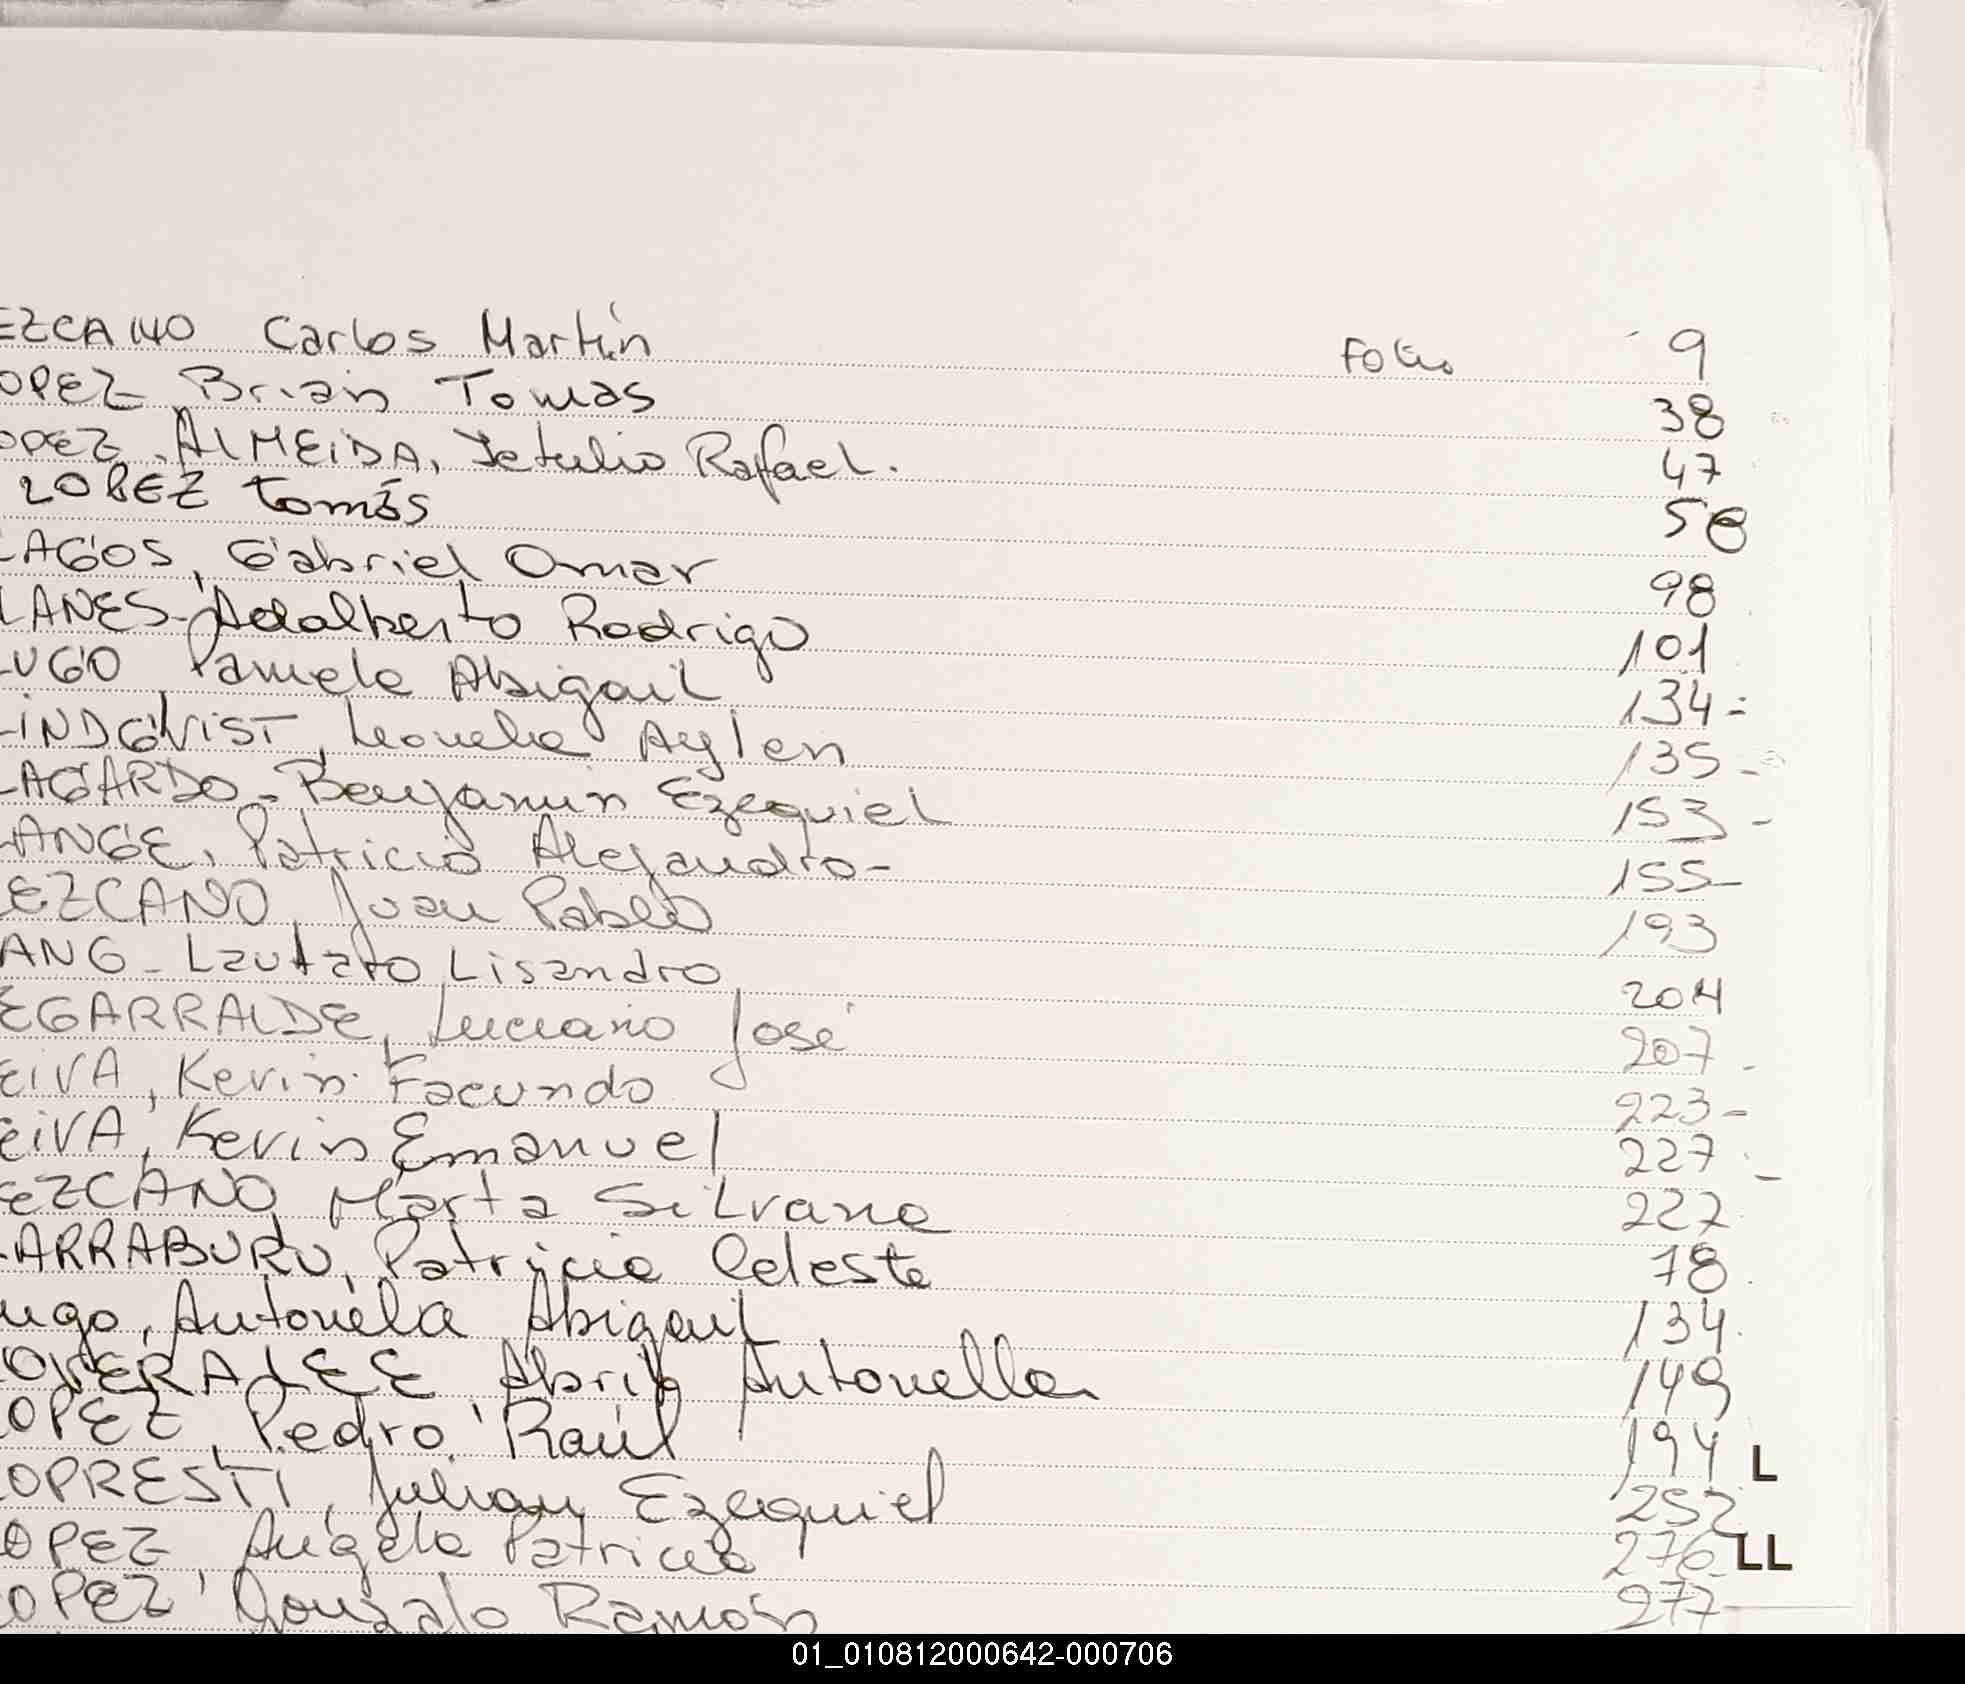 EZCANO Carlos Martín Folio 9
OPEZ Brian Tomas 38
OPEZ, ALMEIDA, Jetulio Rafael. 47
LOPEZ Tomás 58
LAGOS, Gabriel Omar 98
LANES- Adalberto Rodrigo 101
LUGO Pamela Abigail 134-
LINDQVIST, Leonela Aylen 135-
LAGARDO- Benjamin Ezequiel 153-
LANGE, Patricio Alejandro- 155-
LEZCANO, Juan Pablo 193
ANG- Lautaro Lisandro 204
EGARRALDE, Luciano José 207-
EIVA, Kevin Facundo 223-
EIVA, Kevin Emanuel 227-
EZCANO Marta Silvana 227
LARRABURU, Patricia Celeste 78
ugo, Antonela Abigail 134
Abril Antonella 149
OPEZ, Pedro Raúl 194
L
OPRESTI, Julian Ezequiel 252
OPEZ Angela Patricia 276
LL
OPEZ Gonzalo Ramón 277
01_010812000642-000706